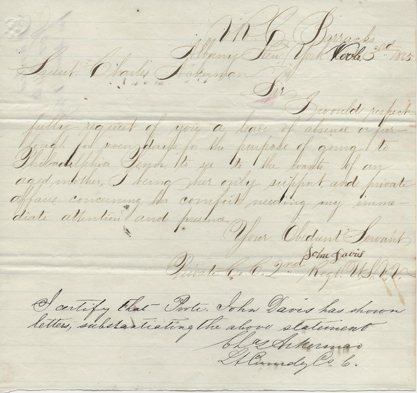 V R C Barracks
Albany New York Nov 3rd 1865
Lieut Charles Ackerman
Sir
I would respect
fully request of you a leave of absence or fur
lough for seven days for the purpose of going to
Philadelphia Penn to see to the wants of my
aged mother, I being her only support and private
affairs concerning her comfort needing my imme
diate attention and presence.
Your Obedient Servant
John Davis
Private Co C. 2nd Regt
I certify that Prvte. John Davis has shown
letters, substantiating the above statement
Chas Ackerman
Lt Comdg Co. C.